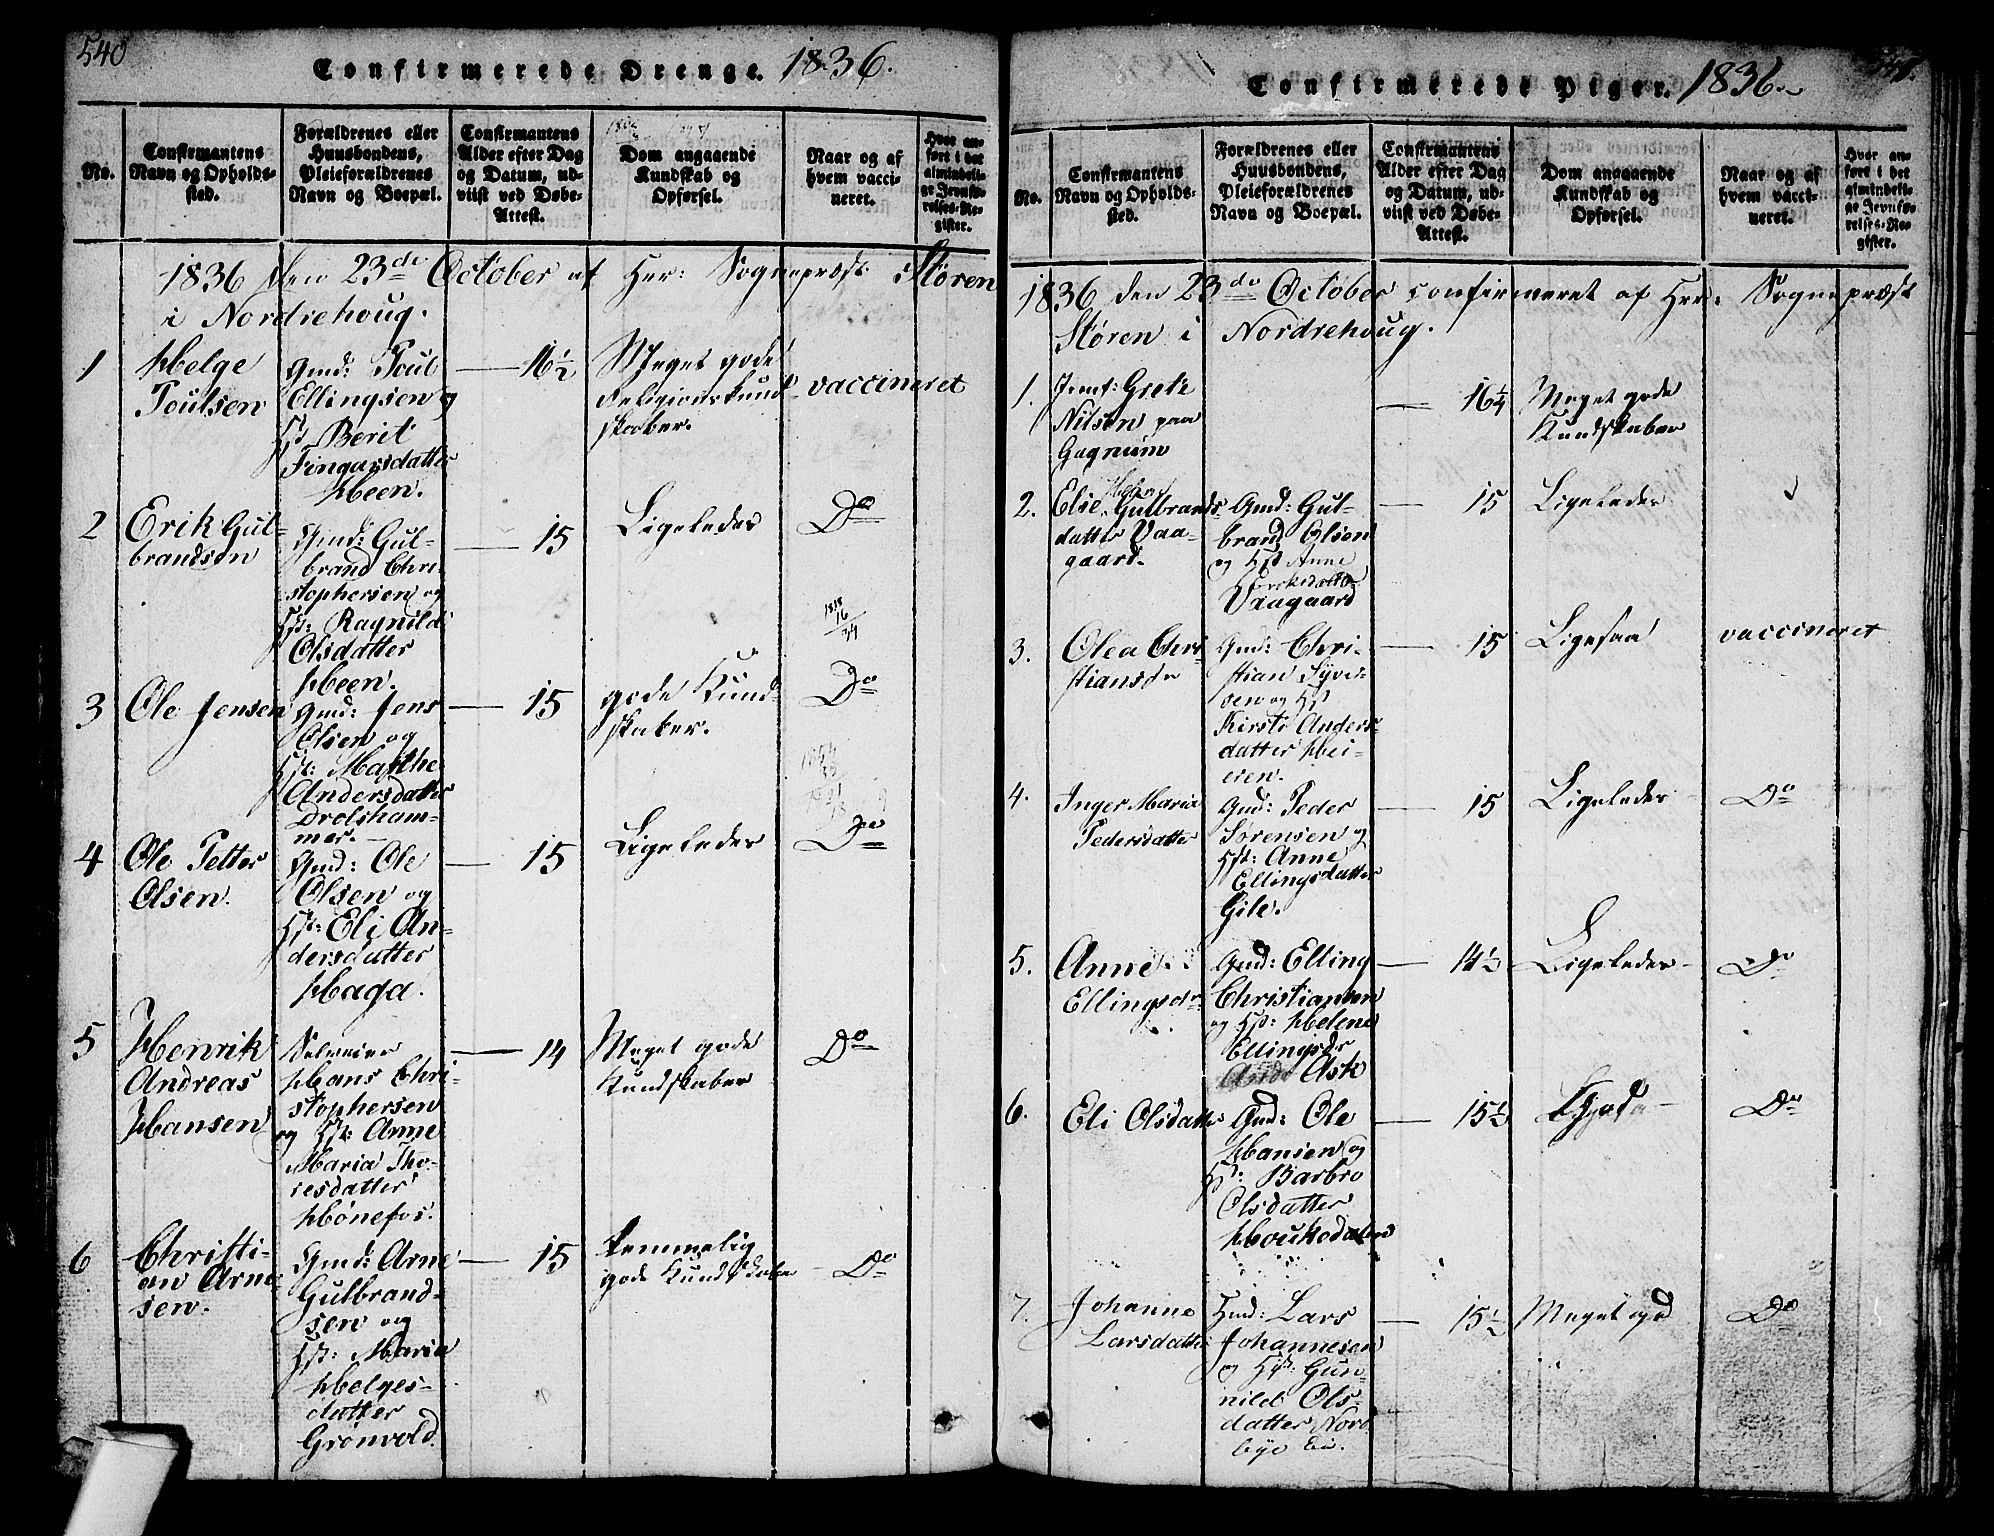 540
Confirmerede Drenge. 1836.
No.
Confirmantens
Navn og Opholds-
sted.
Forældrenes eller
Huusbondens,
Pleieforældrenes
Navn og Boepæl.
Confirmantens
Alder efter Dag
og Datum, ud-
viist ved Døbe-
Attest.
Dom angaaende
Kundskab og
Opførsel.
Naar og af
hvem vacci-
neret.
Hvor an-
ført i det
almindeli-
ge Jevnfø-
relses-Re-
gister.
1836 den 23de October af Her: Sogneprest Støren
i Nordrehoug.
1
Helge
Poulsen
Gmd: Poul
Ellingsen og
Hst Berit
Fingarsdatter
Heen.
16½
Meget gode
Religionskund-
skaber.
vaccineret
2
Erik Gul-
brandsen
Gmd: Gul-
brand Chri-
stophersen og
Hst: Ragnild
Olsdatter
Heen.
15
Ligeledes
Do
3
Ole Jensen
Gmd: Jens
Olsen og
Hst: Marthe
Andersdatter
Drolsham-
mer.
15
gode Kund-
skaber.
Do
4
Ole Petter
Olsen.
Gmd: Ole
Olsen og
Hst: Eli An-
dersdatter
Haga.
15
Ligeledes
Do
5
Henrik
Andreas
Hansen
Selveier
Hans Chri-
stophersen
og Hst: Anne
Maria Tho-
resdatter
Hønefos.
14
Meget gode
Kundskaber
Do
6
Christi-
an Arne-
sen.
Gmd: Arne
Gulbrand-
sen og
Hst: Maria
Helges-
datter
Grønvold.
15
temmelig
gode Kundskaber
Do
Confirmerede Piger. 1836.
No.
Confirmantens
Navn og Opholds-
sted.
Forældrenes eller
Huusbondens,
Pleieforældrenes
Navn og Boepæl.
Confirmantens
Alder efter Dag
og Datum, ud-
viist ved Døbe-
Attest.
Dom angaaende
Kundskab og
Opførsel.
Naar og af
hvem vacci-
neret.
Hvor an-
ført i det
almindeli-
ge Jevnfø-
relses-Re-
gister.
1836 den 23de October confirmeret af Hrr: Sogneprest
Støren i Nordrehoug.
1.
Jomf: Grete
Nilsen paa
Gagnum
16¼
Meget gode
Kundskaber
2.
Else Gulbrands-
datter Vaa-
gaard.
Gmd: Gul-
brand Olsen
og Hst Anne
Vaagaard
15
Ligeledes
3.
Olea Chri-
stiansdr
Gmd: Chri-
stian Syver-
sen og Hst
Kirsti Anders-
datter Hei-
eren.
15
Ligesaa
vaccineret
4.
Inger Maria
Pedersdatter
Gmd: Peder
Sørensen og
Hst: Anne
Ellingsdatter
Gile.
15
Ligeledes
Do
5.
Anne
Ellingsdr
Gmd: Elling
Christiansen
og Hst: Helene
Ellingsdr
Ask
14½
Ligeledes
Do
6.
Eli Olsdatter
Gmd: Ole
Hansen og
Hst: Barbro
Olsdatter
Houkedalen
15½
Do
7.
Johanne
Larsdatter
Hmd: Lars
Johannesen
og Hst: Gun-
nild Ols-
datter Nord
bye Eie.
15½
Meget god
Do